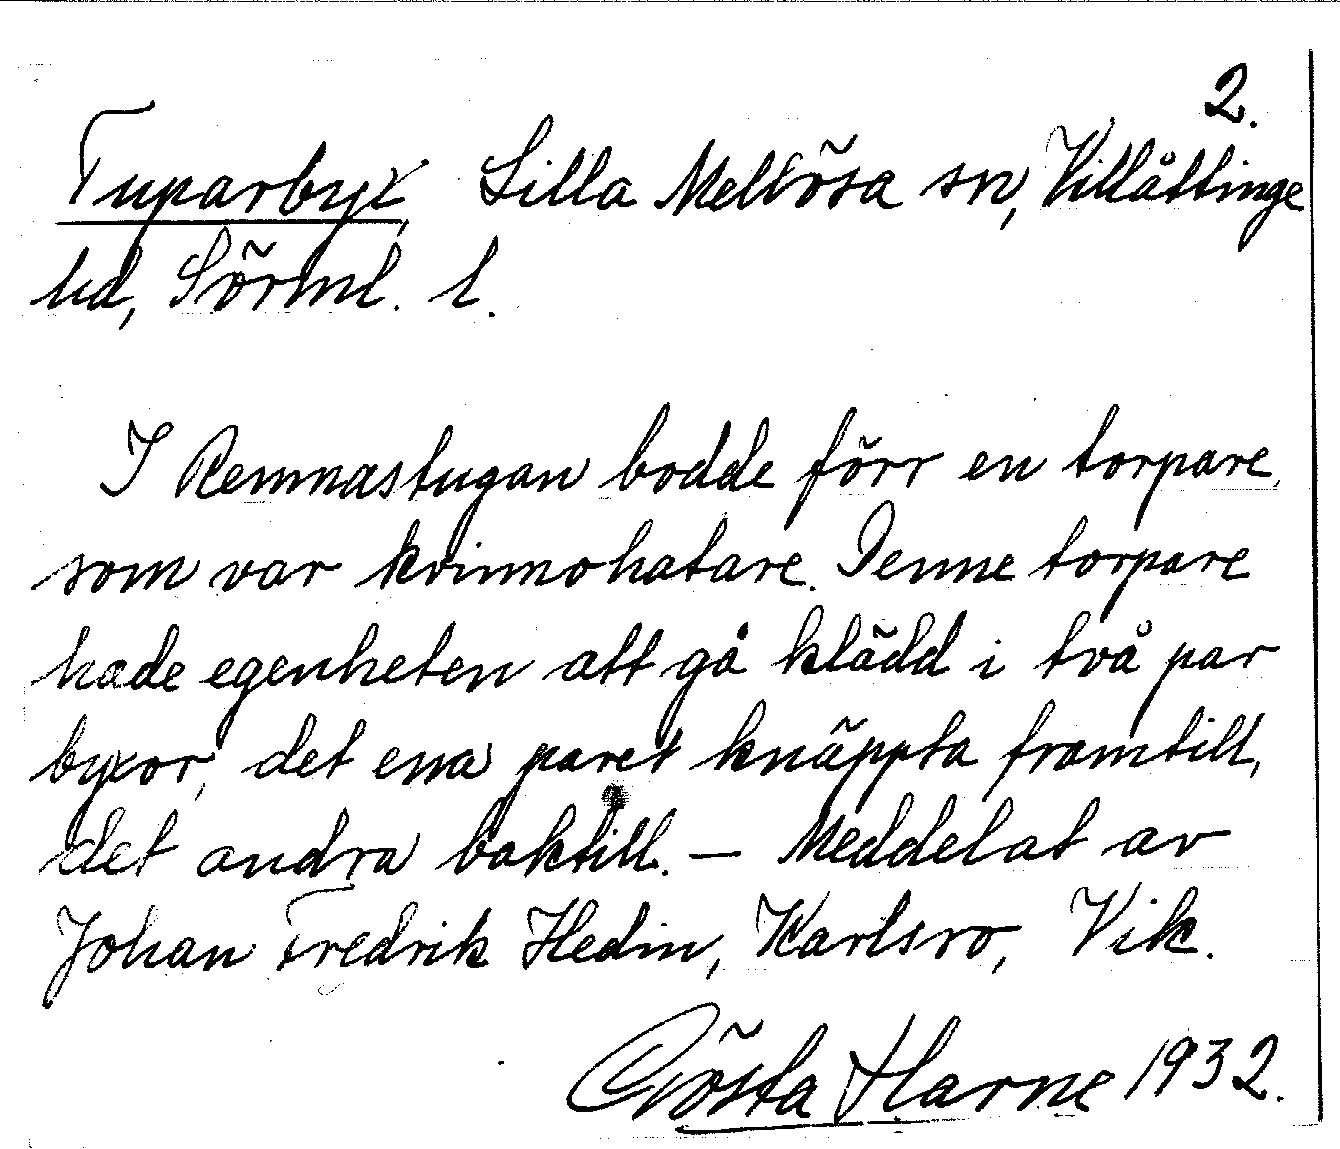 2.
Tuparbyx, Lilla Mellösa sn, Villåttinge
hd, Sörml. l.
I Remnastugan bodde förr en torpare,
som var kvinnohatare. Denne torpare
hade egenheten att gå klädd i två par
byxor, det ena paret knäppta framtill,
det andra baktill. — Meddelat av
Johan Fredrik Hedin, Karlsro, Vik.
Gösta Harne 1932.